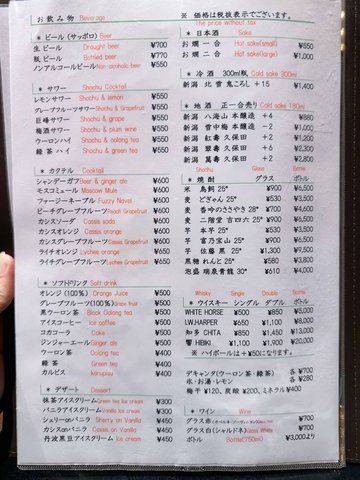 お飲み物 Beverage
※ 価格は税抜表示でございます。
The price without tax
★ ビール (サッポロ) Beer
生ビール Draught beer ¥700
瓶ビール Bottled beer ¥770
ノンアルコールビール Non-alcoholic beer ¥550
★ サワー Shochu Cocktail
レモンサワー Shochu & lemon ¥550
グレープフルーツサワー Shochu & Grapefruit ¥550
巨峰サワー Shochu & grape ¥550
梅酒サワー Shochu & plum wine ¥550
ウーロンハイ Shochu & oolong tea ¥550
緑茶ハイ Shochu & green tea ¥550
★ カクテル Cocktail
シャンデーガフ Beer & ginger ale ¥600
モスコミュール Moscow Mule ¥600
ファージーネーブル Fuzzy Navel ¥600
ピーチグレープフルーツ Peach Grapefruit ¥600
カシスソーダ Cassis soda ¥600
カシスオレンジ Cassis orange ¥600
カシスグレープフルーツ Cassis Grapefruit ¥600
ライチオレンジ Lychee orange ¥600
ライチグレープフルーツ Lychee Grapefruit ¥600
★ ソフトドリング Soft drink
オレンジ (100%) Orange Juice ¥500
グレープフルーツ(100%) Grapefruit ¥500
黒ウーロン茶 Black Oolong tea ¥500
アイスコーヒー Ice coffee ¥500
コカコーラ Coke ¥500
ジンジャーエール Ginger ale ¥500
ウーロン茶 Oolong tea ¥400
緑茶 Green tea ¥400
カルピス karupisu ¥400
★ デザート Dessert
抹茶アイスクリーム Green tea Ice cream ¥300
バニラアイスクリーム Vanilla Ice cream ¥300
シェリーonバニラ Sherry on Vanilla ¥500
カシスonバニラ Cassis on Vanilla ¥500
丹波黒豆アイスクリーム Ice cream ¥450
★ 日本酒 Sake
お燗一合 Hot sake(small) ¥550
お燗二合 Hot sake(large) ¥1,000
★ 冷酒 300ml瓶 Cold sake 300ml
新潟 北雪 鬼ころし +15 ¥1,400
★ 地酒 正一合売り Cold sake 180ml
新潟 八海山 本醸造 +4 ¥880
新潟 雪中梅 本醸造 -2 ¥1,000
新潟 紅寿 久保田 +2 ¥1,200
新潟 翠寿 久保田 +3 ¥1,200
新潟 萬寿 久保田 +2 ¥1,800
Shochu Glass Bottle
★ 焼酎 グラス ボトル
米 鳥飼 25° ¥900 ¥6,500
麦 どぎゃん 25° ¥500 ¥3,500
麦 香吟のささやき 28° ¥700 ¥5,000
麦 二階堂 吉四六 25° ¥700 ¥5,000
芋 本不二 25° ¥500 ¥3,500
芋 富乃宝山 25° ¥700 ¥5,000
芋 佐藤 黒 25° ¥1,300 ¥9,500
黒糖 れんと 25° ¥500 ¥3,500
泡盛 瑞泉青龍 30° ¥610 ¥4,000
Whisky Single Double Bottle
★ ウイスキー シングル ダブル ボトル
WHITE HORSE ¥500 ¥850 ¥5,000
I.W.HARPER ¥650 ¥1,100 ¥8,000
知多 CHITA ¥850 ¥1,450 ¥13,000
響 HIBIKI ¥1,100 ¥1,900 ¥20,000
※ ハイボールは+¥50になります。
デキャンタ(ウーロン茶・緑茶) 各 ¥700
氷・お湯・レモン 各 ¥280
梅干 ¥120, 炭酸 ¥200, ミネラル¥400
★ ワイン Wine
グラス赤 Glass Red ¥700
グラス白(シャルドネ) Glass White ¥700
ボトル Bottle(750ml) ¥3,000より